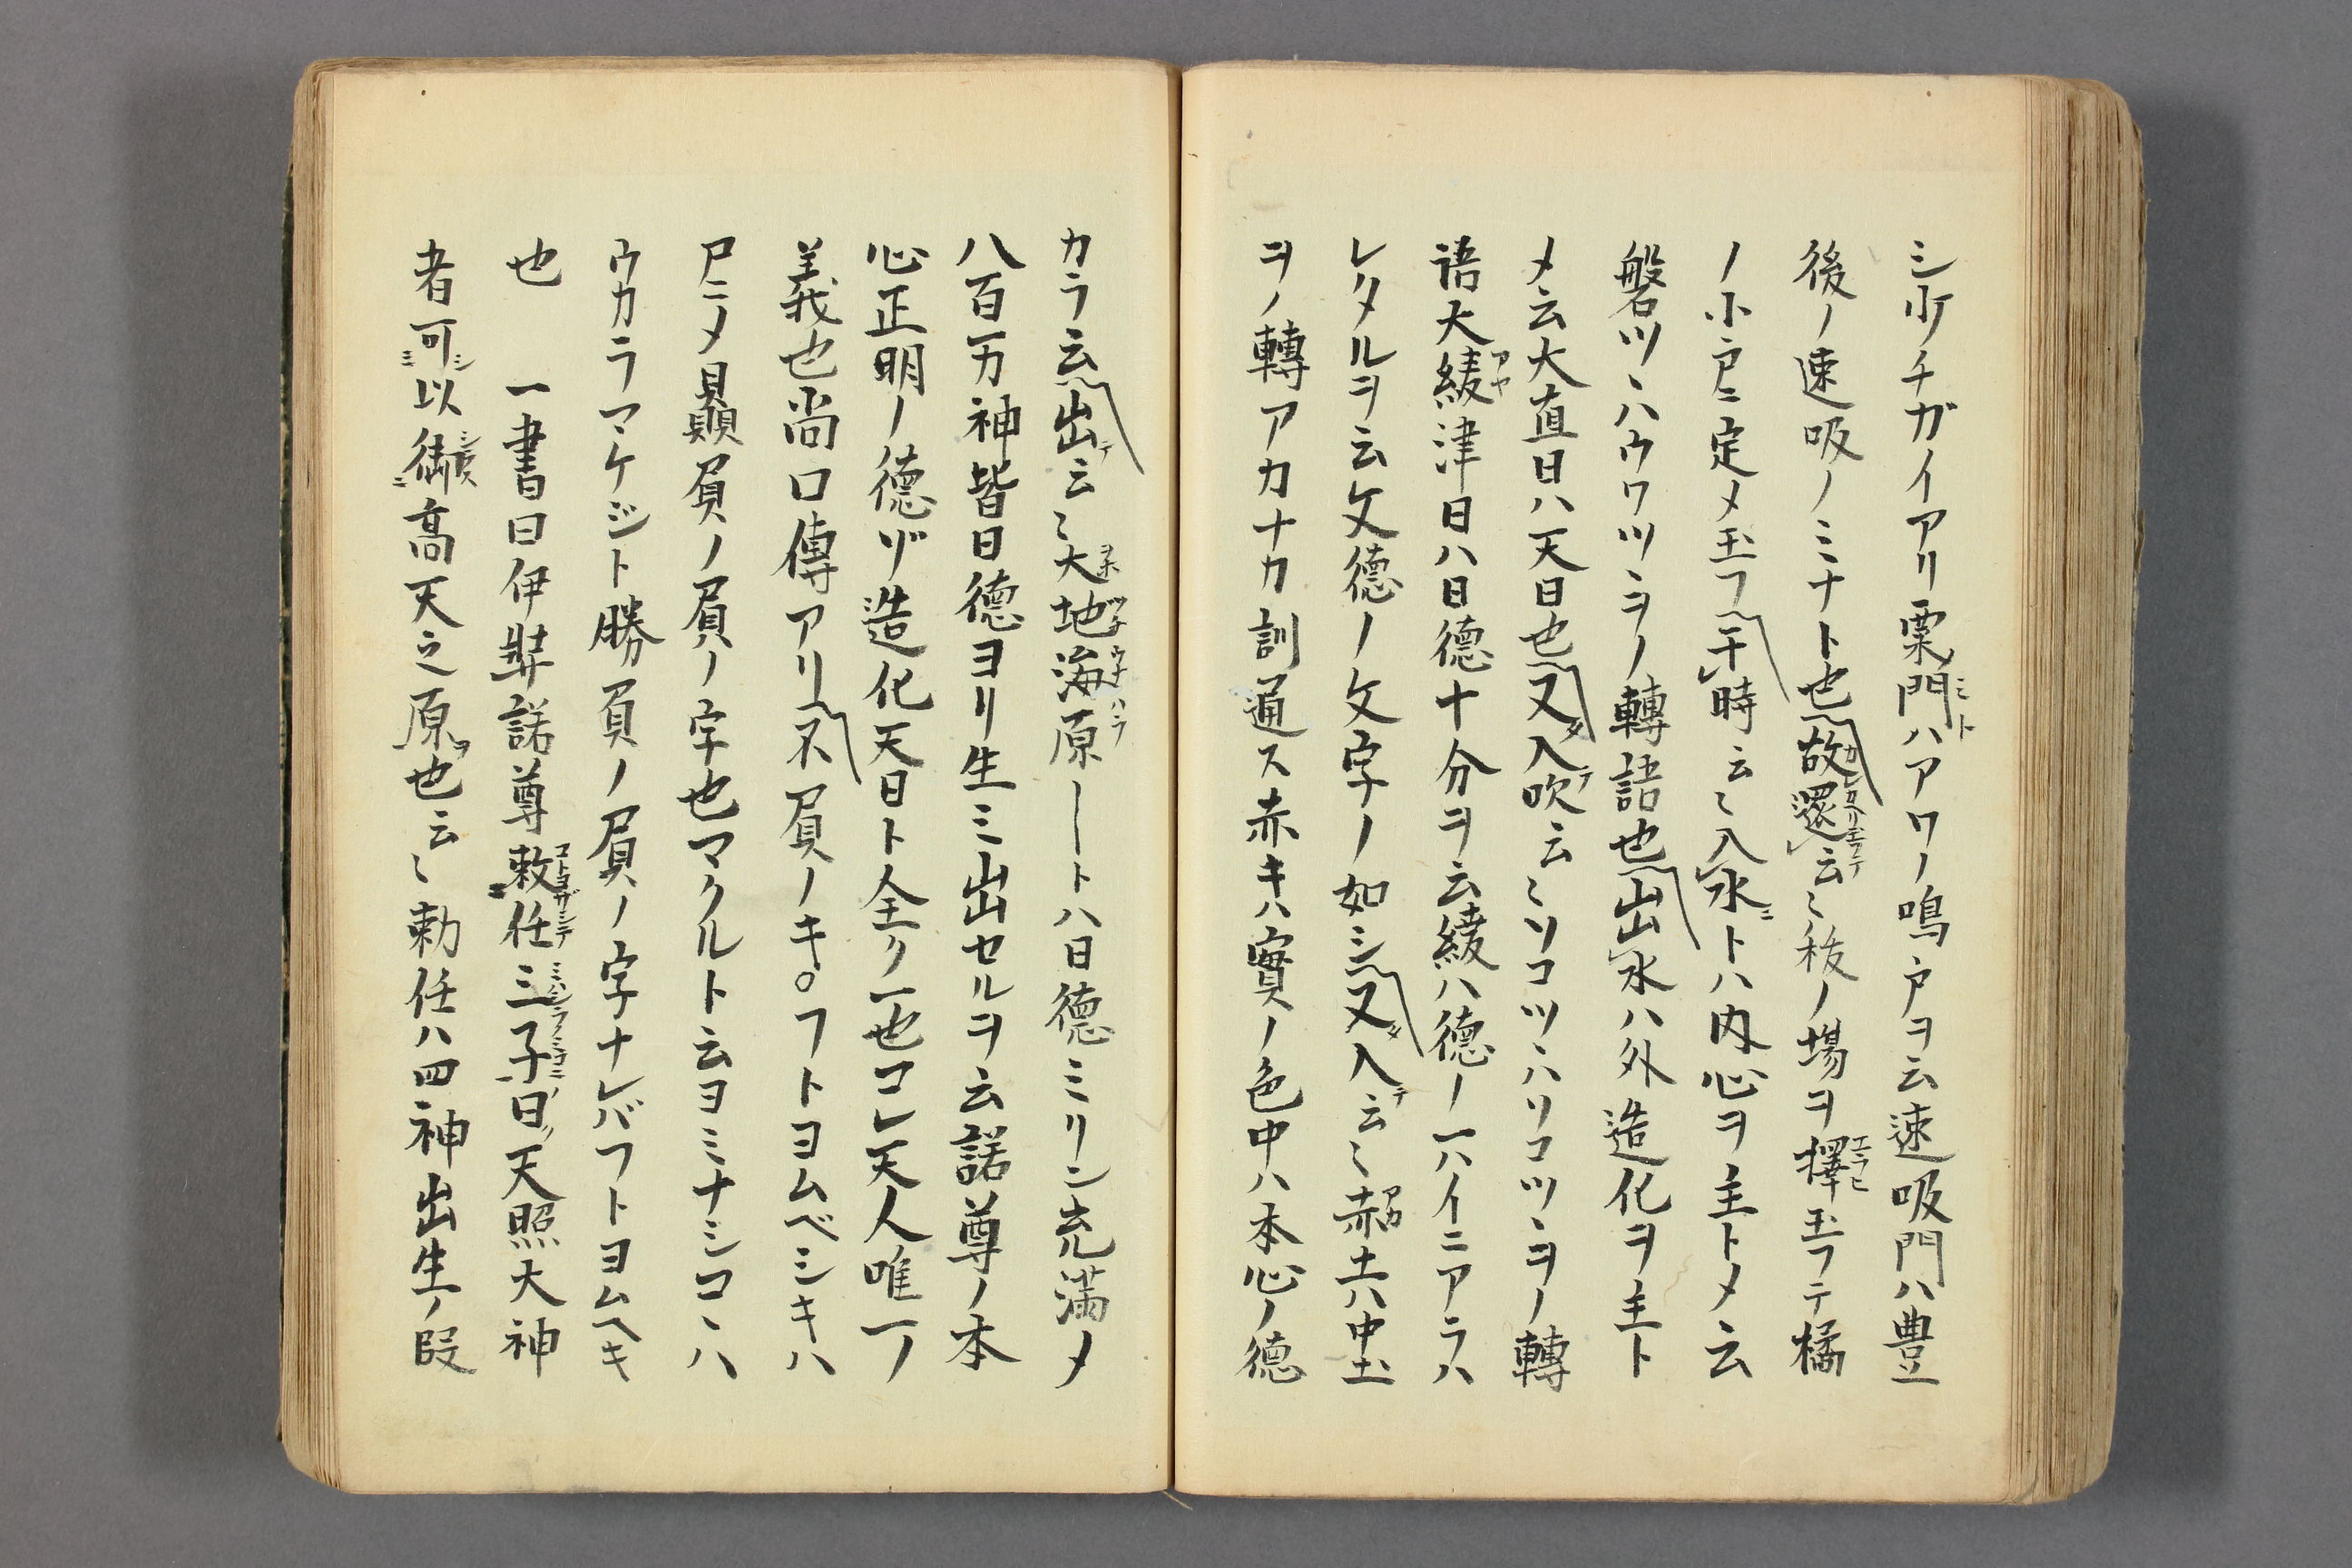 シ少チガイアリ粟門ハアワノ鳴戸ヲ云速吸門ハ豊
後ノ速吸ノミナト也故還云〻秡ノ場ヲ擇玉フテ橘
ノ小戸ニ定メ玉フ于時云〻入水トハ内心ヲ主トメ云
磐ツヽハウワツヽヲノ轉語也出水ハ外造化ヲ主ト
メ云大直日ハ天日也又入吹云〻ソコツヽハソコツヽヲノ轉
語大綾津日ハ日德十分ヲ云綾ハ德ノ一ハイニアラハ
レタルヲ云文德ノ文字ノ如シ又入云〻赤土ハ中土
ヲノ轉アカナカ訓通ス赤キハ實ノ色中ハ本心ノ德
カラ云出云〻大地海原――トハ日德ミリン充満メ
八百万神皆日德ヨリ生ミ出セルヲ云諾尊ノ本
心正明ノ德ゾ造化天日ト全ク一也コレ天人唯一ノ
義也尚口傳アリ不屓ノキ。フトヨムベシキハ
尸ニメ贔屓ノ屓ノ字也マクルト云ヨミナシコヽハ
ウカラマケジト勝屓ノ屓ノ字ナレバフトヨムヘキ
也　一書曰伊弉諾尊敕任三子曰天照大神
者可以御高天之原也云〻勅任ハ四神出生ノ段